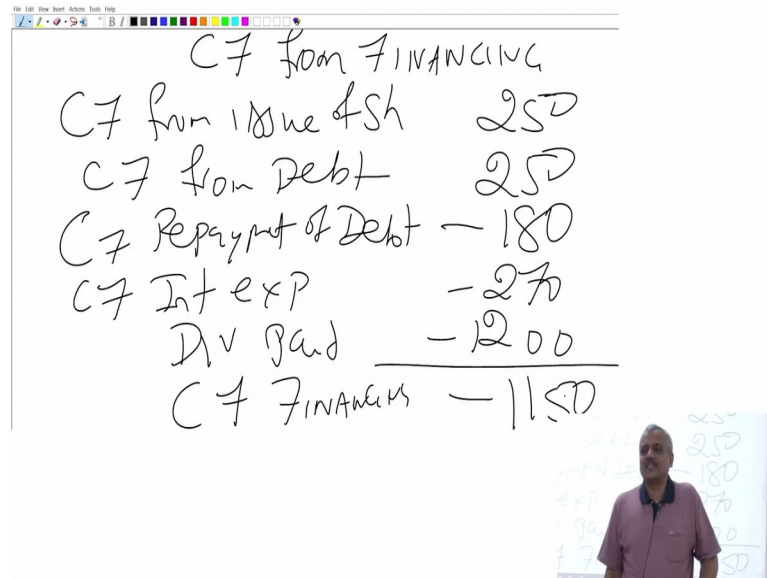 File Edit View Insert Actions Tools Help
CF from FINANCING
CF from issue of Sh 250
CF from Debt 250
CF Repaymt of Debt - 180
CF Int exp - 270
Div Paid - 1200
CF FINANCING - 1150
250
250
180
270